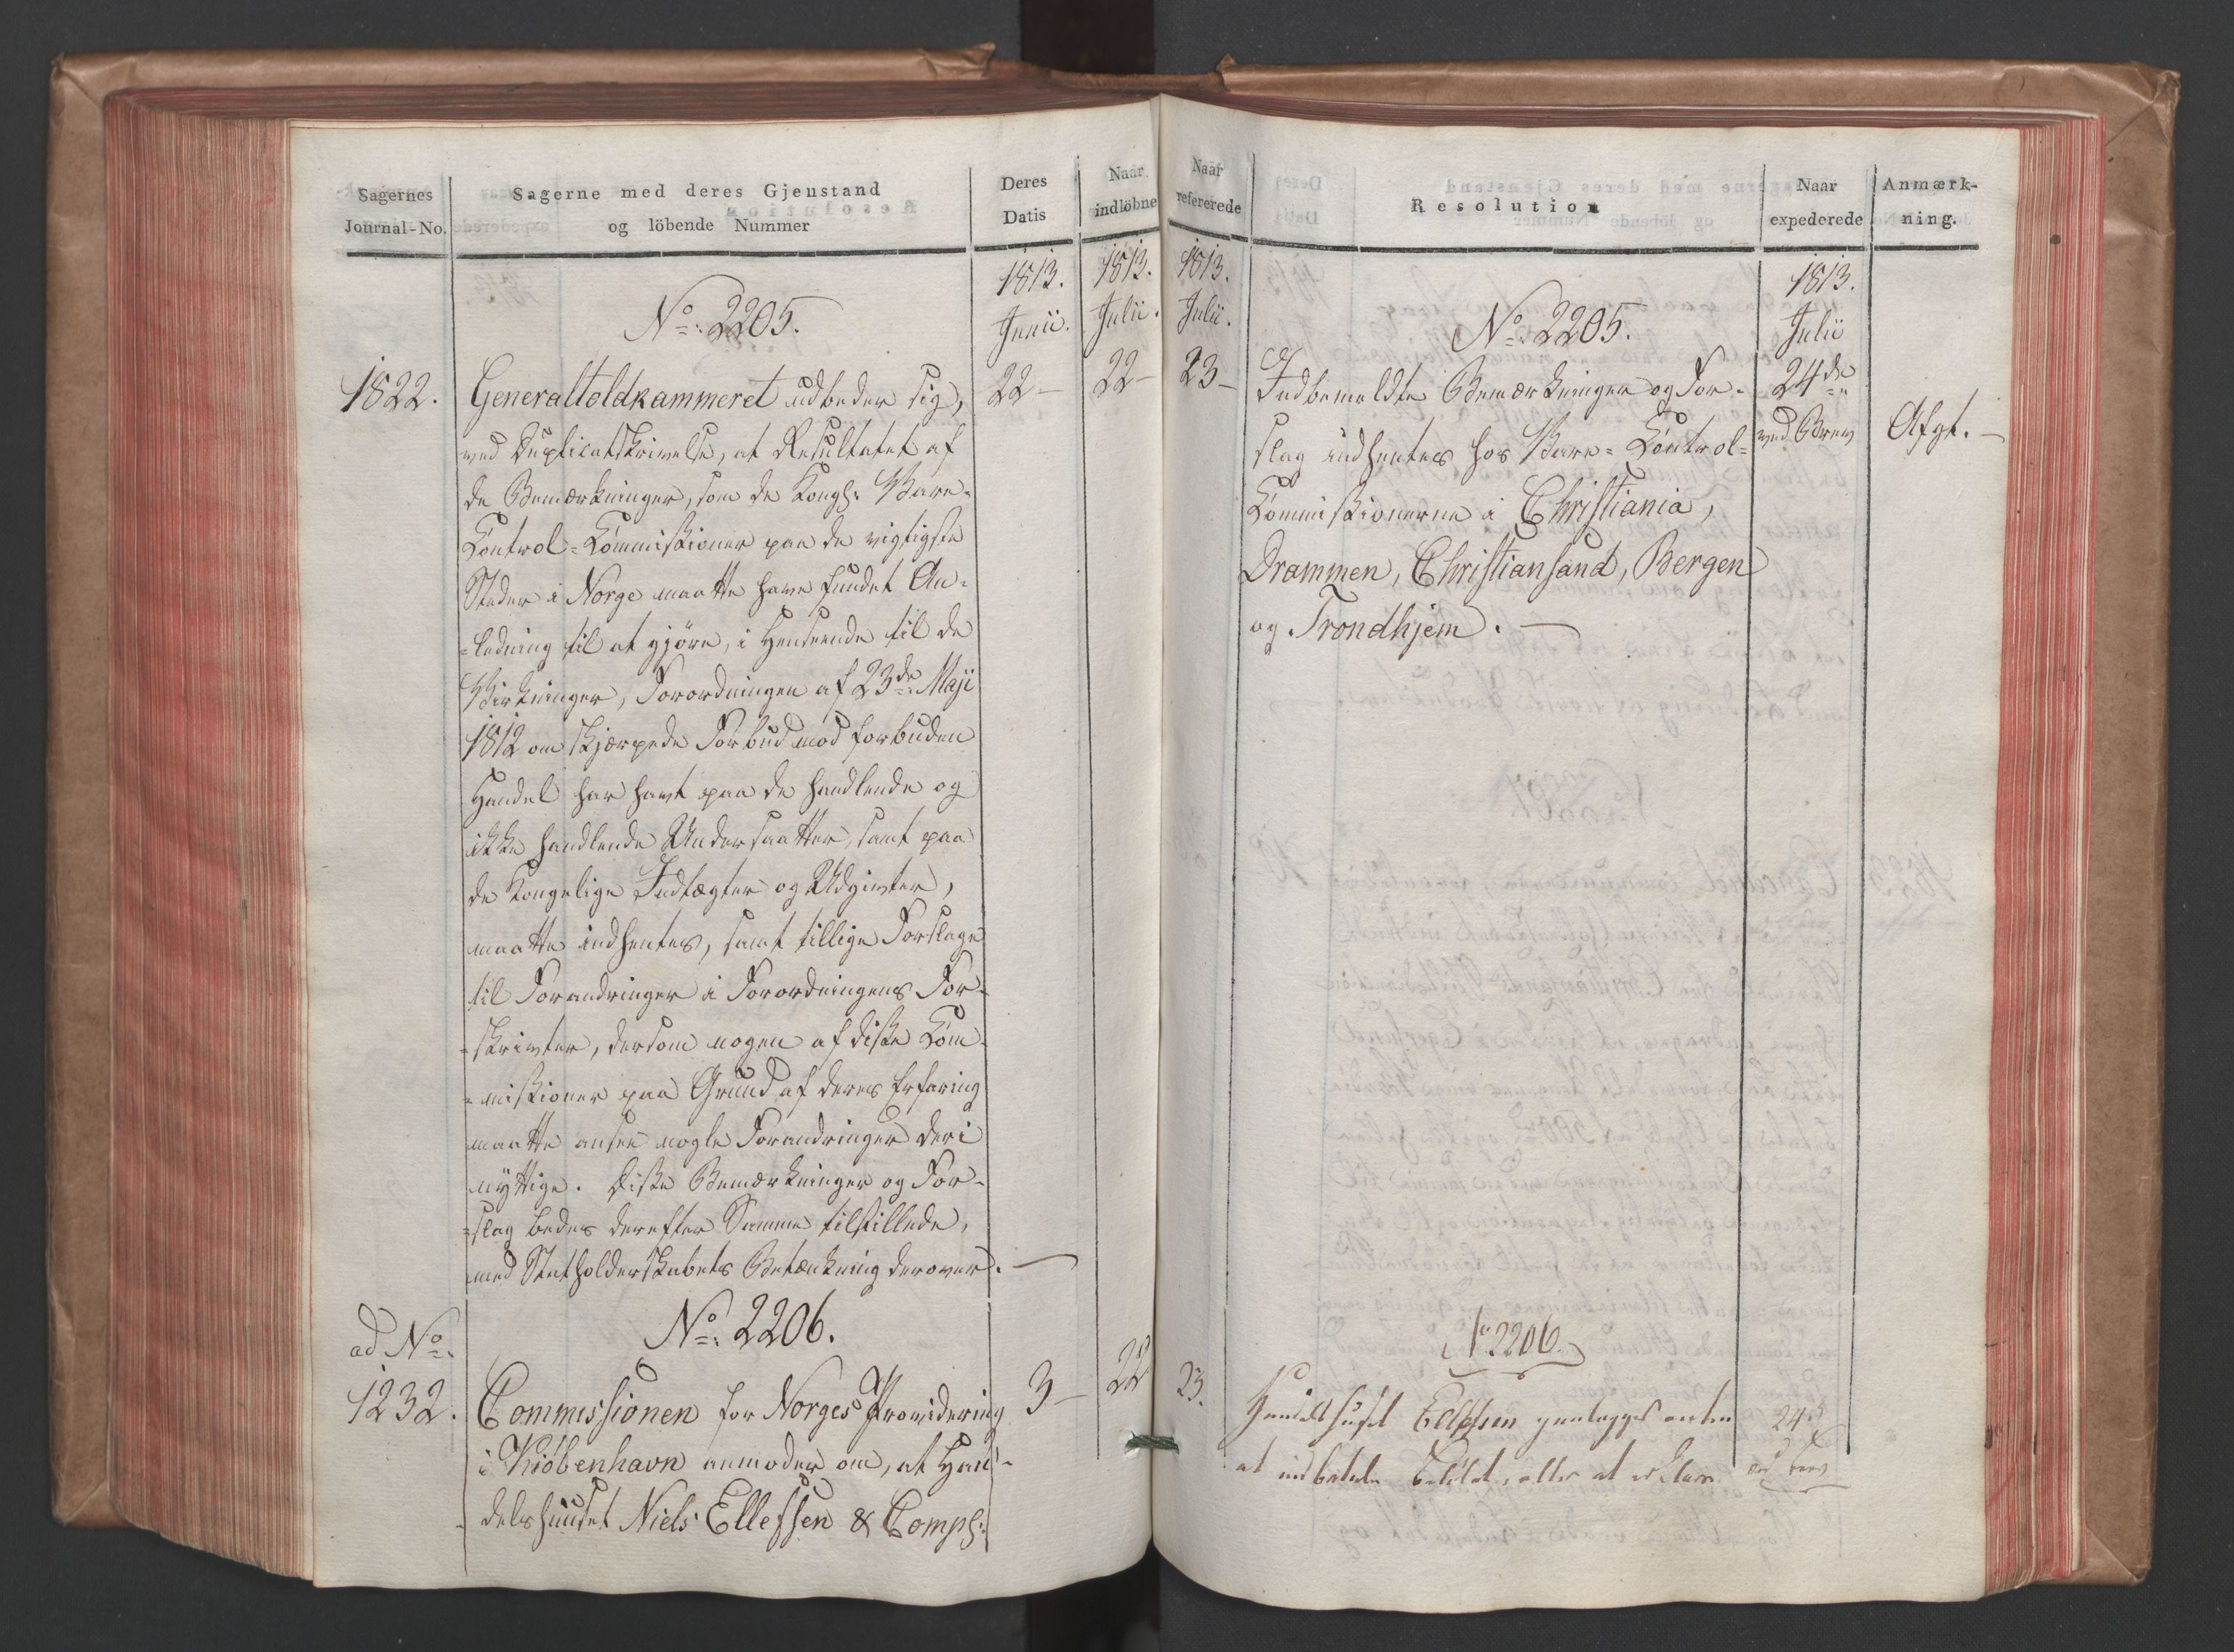 Sagernes
Journal-No.
Sagerne med deres Gjenstand
og löbende Nummer
Deres
Datis
Naar
indløbne
1813.
Junii.
1813.
Julii.
No. 2205.
1822.
Generaltoldkammeret udbeder sig,
22-
22-
ved Duplicatskrivelse, at Resultatet af
de Bemærkninger, som de Kongl: Vare-
Control-Commissioner paa de vigtigste
Steder i Norge maatte have fundet An-
-ledning til at gjöre, i Henseende til de
Virkninger, Forordningen af 23de Maji
1812 om skjærpede Forbud mod forbuden
Handel har havt paa de handlende og
ikke handlende Undersaatter, samt paa
de Kongelige Indtægter og Udgivter,
maatte indhentes, samt tillige Forslage
til Forandringer i Forordningens For-
-skrivter, dersom nogen af disse Com-
-missioner paa Grund af deres Erfaring
maatte ansee nogle Forandringer deri
nyttige. Disse Bemærkninger og For-
-slag bedes derefter Samme tilstillede,
med Statholderskabets Betænkning derover. —
ad No.
1232.
No. 2206.
Commissionen for Norges Providering
3-
22
i Kiöbenhavn anmoder om, at Han-
delshuuset Niels Ellefsen & Comp:
Naar
refererede
Resolution
Naar
expederede
Anmærk-
ning.
1813.
Julii.
1813.
Julii
No. 2205.
23-
Indbemeldte Bemærkninger og For-
24de
slag indhentes hos Vare-Control-
ved Brev
Afgt. —
Commissionerne i Christiania,
Drammen, Christiansand, Bergen
og Trondhjem. —
No. 2206.
23.
Handelshuset Ellefsen paalægges enten
24de
at indbetale Beløbet, eller at erklære
ved Brev